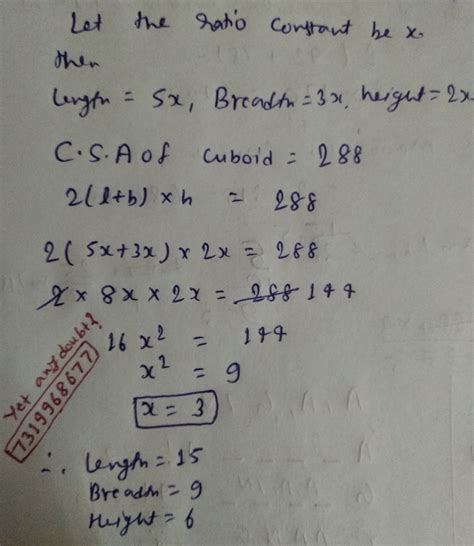 Let the ratio constant be x.
then
length = 5x, Breadth = 3x, height = 2x
C.S.A of cuboid = 288
2(l+b) × h = 288
2(5x+3x) × 2x = 288
2 × 8x × 2x = 288 144
16x² = 144
x² = 9
x = 3
Yet any doubt?
7319968677
∴ Length = 15
Breadth = 9
Height = 6